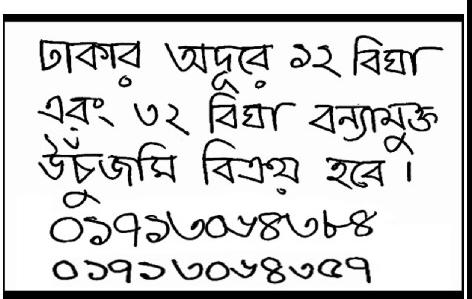 ঢাকার অদূরে ১২ বিঘা
এবং ৩২ বিঘা বন্যামুক্ত
উঁচুজমি বিক্রয় হবে।
০১৭১৩০৬৪৩৮৪
০১৭১৩০৬৪৩৫৭